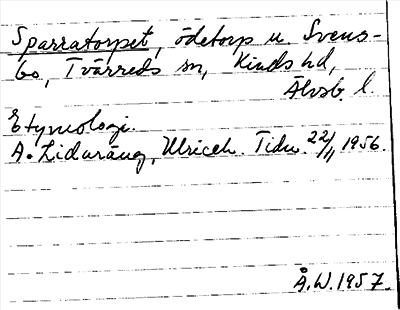 Sparratorpet, ödetorp u. Svens-
bo, Tvärreds sn, Kinds hd,
Älvsb. l.
Etymologi.
A. Lidaräng, Ulriceh. Tidn. 22/11 1956.
Å.W. 1957.